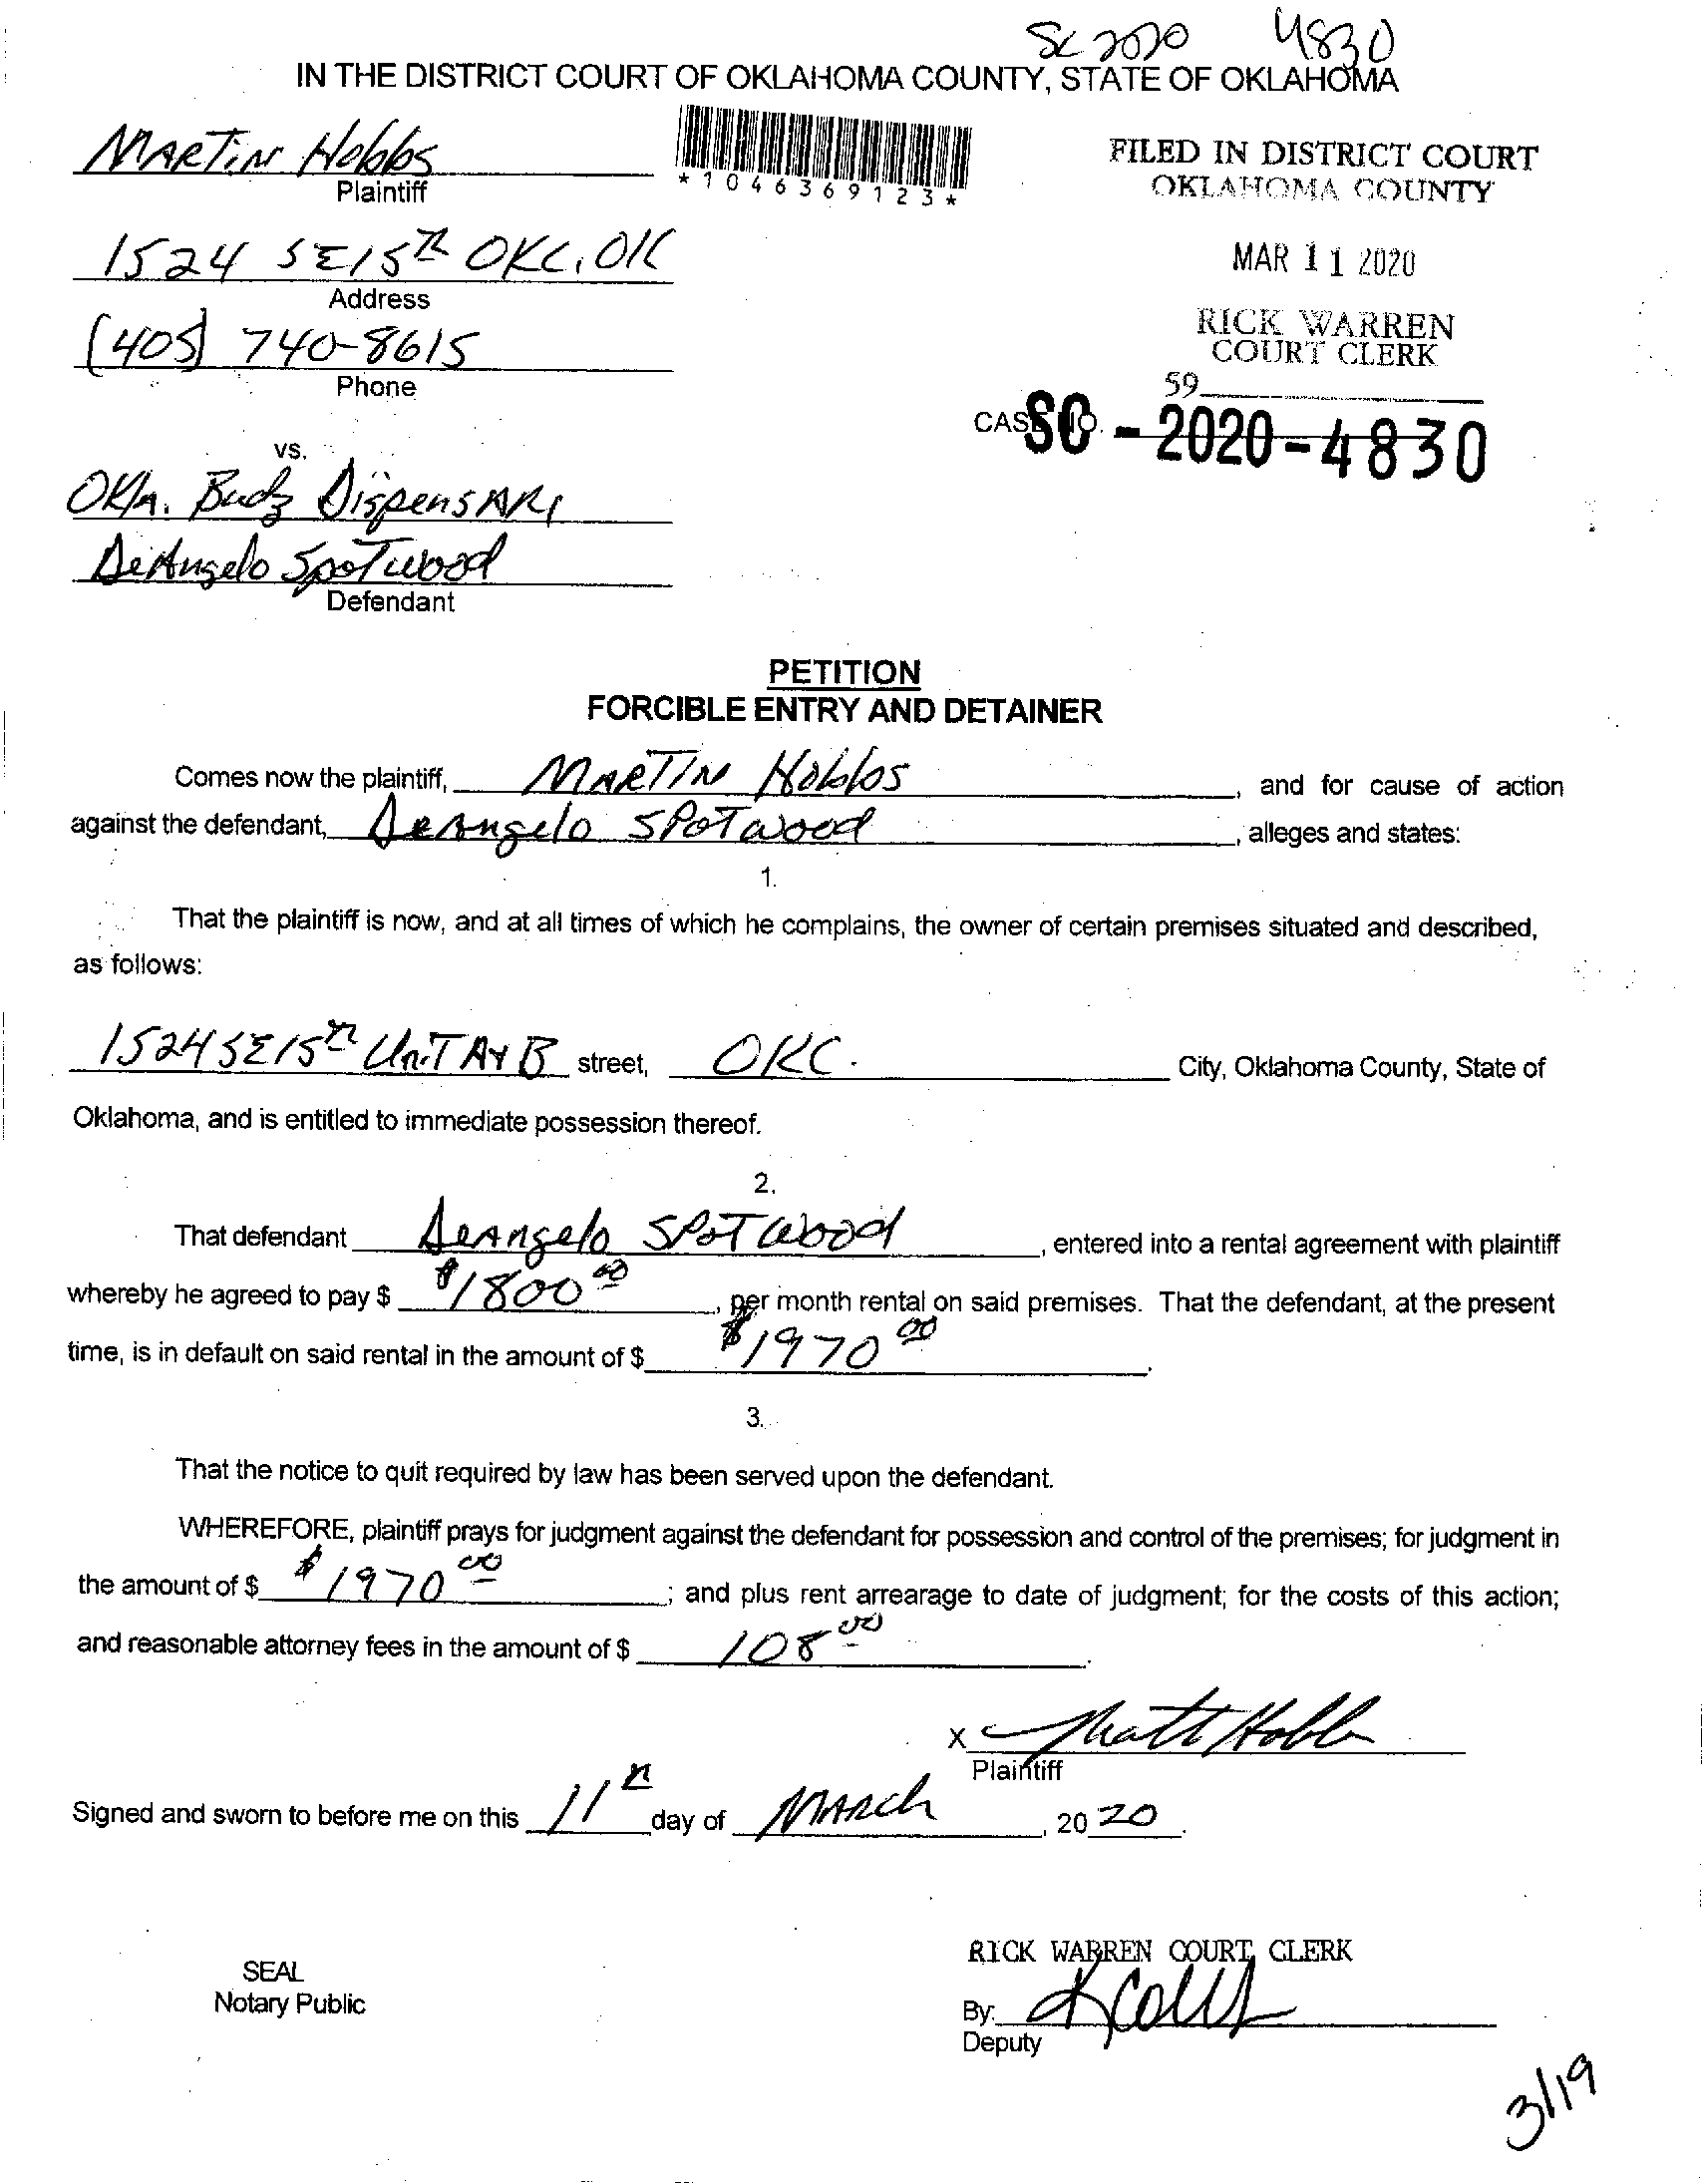 SC 2020 4830
IN THE DISTRICT COURT OF OKLAHOMA COUNTY, STATE OF OKLAHOMA
MARTIN Hobbs
Plaintiff
*1046369123*
FILED IN DISTRICT COURT
OKLAHOMA COUNTY
MAR 11 2020
RICK WARREN
COURT CLERK
59
1524 SE 15th OKC, OK
Address
(405) 740-8615
Phone
CASE NO. SC-2020-4830
vs.
Okla. Budz DispensARY
DeAngelo Spotwood
Defendant
PETITION
FORCIBLE ENTRY AND DETAINER
Comes now the plaintiff, MARTIN Hobbs, and for cause of action
against the defendant, DeAngelo SPOTwood, alleges and states:
1.
That the plaintiff is now, and at all times of which he complains, the owner of certain premises situated and described,
as follows:
1524 SE 15th UniT A+B street, OKC. City, Oklahoma County, State of
Oklahoma, and is entitled to immediate possession thereof.
2.
That defendant DeAngelo SPOTwood, entered into a rental agreement with plaintiff
whereby he agreed to pay $ $1800 00, per month rental on said premises. That the defendant, at the present
time, is in default on said rental in the amount of $ $1970 00.
3.
That the notice to quit required by law has been served upon the defendant.
WHEREFORE, plaintiff prays for judgment against the defendant for possession and control of the premises; for judgment in
the amount of $ $1970 00; and plus rent arrearage to date of judgment; for the costs of this action;
and reasonable attorney fees in the amount of $ 108 00.
X Matt Hobbs
Plaintiff
Signed and sworn to before me on this 11th day of MARch, 2020.
SEAL
Notary Public
RICK WARREN COURT CLERK
By:
Deputy
3/19